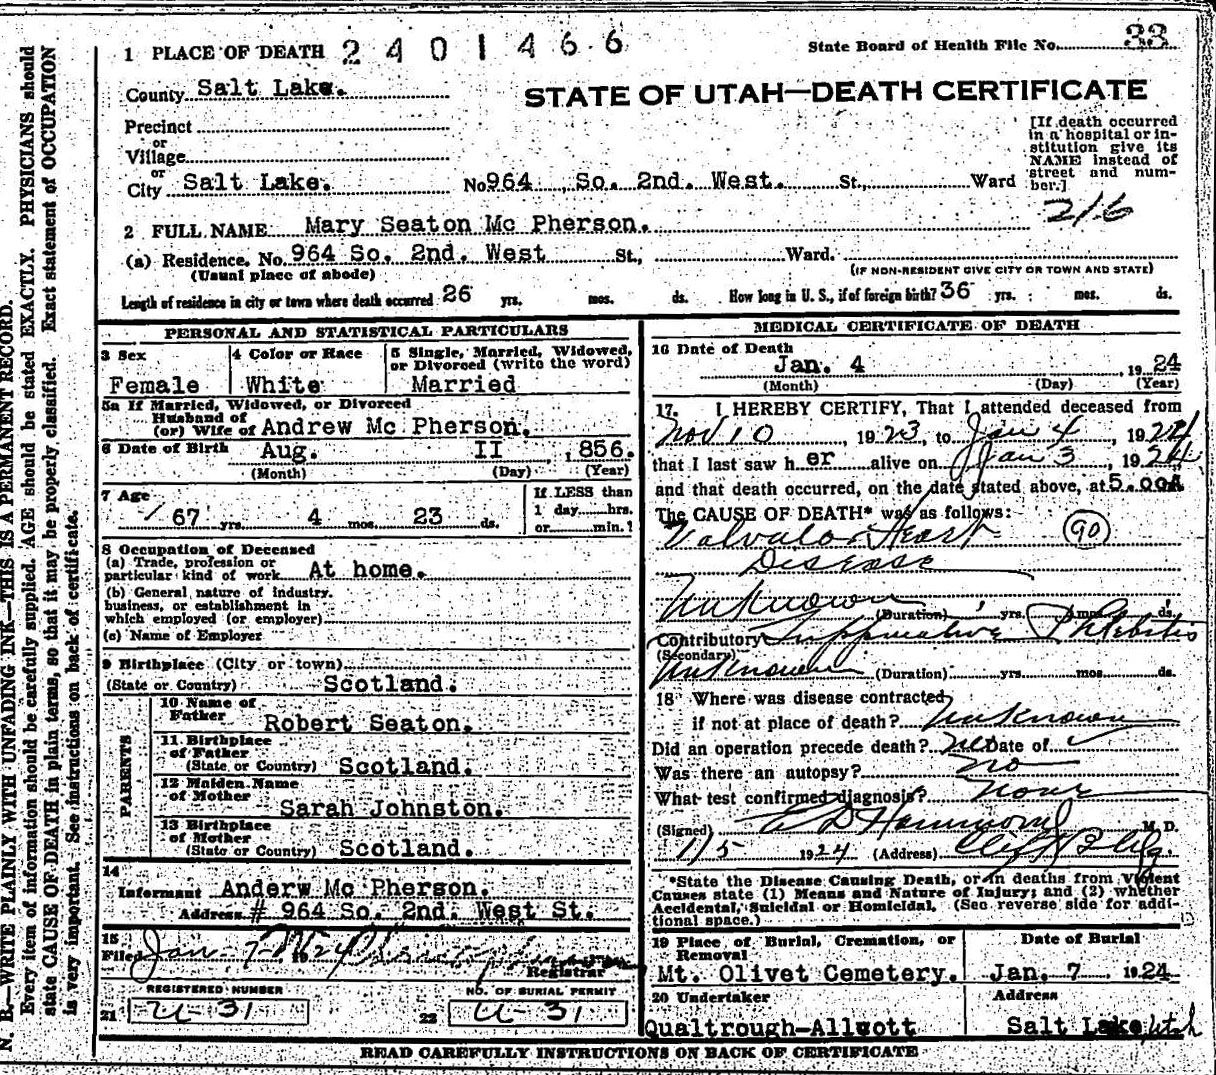 1 PLACE OF DEATH 2401466
State Board of Health File No. 33
County Salt Lake.
STATE OF UTAH—DEATH CERTIFICATE
Precinct
or
Village
or
City Salt Lake. No 964 So. 2nd. West. St., Ward
[If death occurred
in a hospital or in-
stitution give its
NAME instead of
street and num-
ber.]
216
2 FULL NAME Mary Seaton Mc Pherson.
(a) Residence. No. 964 So. 2nd. West St., Ward.
(Usual place of abode) (IF NON-RESIDENT GIVE CITY OR TOWN AND STATE)
Length of residence in city or town where death occurred 26 yrs. mos. ds. How long in U. S., if of foreign birth? 36 yrs. mos. ds.
PERSONAL AND STATISTICAL PARTICULARS
3 Sex
Female
4 Color or Race
White
5 Single, Married, Widowed,
or Divorced (write the word)
Married
5a If Married, Widowed, or Divorced
Husband of
(or) Wife of Andrew Mc Pherson.
6 Date of Birth Aug. II ,1856.
(Month) (Day) (Year)
7 Age
67 yrs. 4 mos. 23 ds.
If LESS than
1 day hrs.
or min.?
8 Occupation of Deceased
(a) Trade, profession or
particular kind of work At home.
(b) General nature of industry,
business, or establishment in
which employed (or employer)
(c) Name of Employer
9 Birthplace (City or town)
(State or Country) Scotland.
PARENTS
10 Name of
Father Robert Seaton.
11 Birthplace
of Father
(State or Country) Scotland.
12 Maiden Name
of Mother
Sarah Johnston.
13 Birthplace
of Mother
(State or Country) Scotland.
14
Informant Anderw Mc Pherson.
Address # 964 So. 2nd. West St.
15
Filed Jan. 7 1924
Registrar
REGISTERED NUMBER
21 U 31
NO. OF BURIAL PERMIT
22 U 31
MEDICAL CERTIFICATE OF DEATH
16 Date of Death
Jan. 4 , 1924
(Month) (Day) (Year)
17. I HEREBY CERTIFY, That I attended deceased from
Nov 10 , 1923, to Jan 4 , 1924
that I last saw h er alive on Jan 3 , 1924
and that death occurred, on the date stated above, at 5.00A
The CAUSE OF DEATH* was as follows:
Valvular Heart (90)
Disease
Unknown (Duration) yrs. mos. ds.
Contributory Suppurative Phlebitis
(Secondary)
Unknown (Duration) yrs. mos. ds.
18 Where was disease contracted
if not at place of death? Unknown
Did an operation precede death? No Date of
Was there an autopsy? No
What test confirmed diagnosis? None
(Signed) E D Hammond M. D.
1/5 1924 (Address) Clift Bldg
*State the Disease Causing Death, or in deaths from Violent
Causes state (1) Means and Nature of Injury; and (2) whether
Accidental, Suicidal or Homicidal. (See reverse side for addi-
tional space.)
19 Place of Burial, Cremation, or
Removal
Mt. Olivet Cemetery.
Date of Burial
Jan. 7 , 1924
20 Undertaker
Qualtrough-Allcott
Address
Salt Lake, Utah
READ CAREFULLY INSTRUCTIONS ON BACK OF CERTIFICATE
N. B.—WRITE PLAINLY WITH UNFADING INK—THIS IS A PERMANENT RECORD.
Every item of information should be carefully supplied. AGE should be stated EXACTLY. PHYSICIANS should
state CAUSE OF DEATH in plain terms, so that it may be properly classified. Exact statement of OCCUPATION
is very important. See instructions on back of certificate.